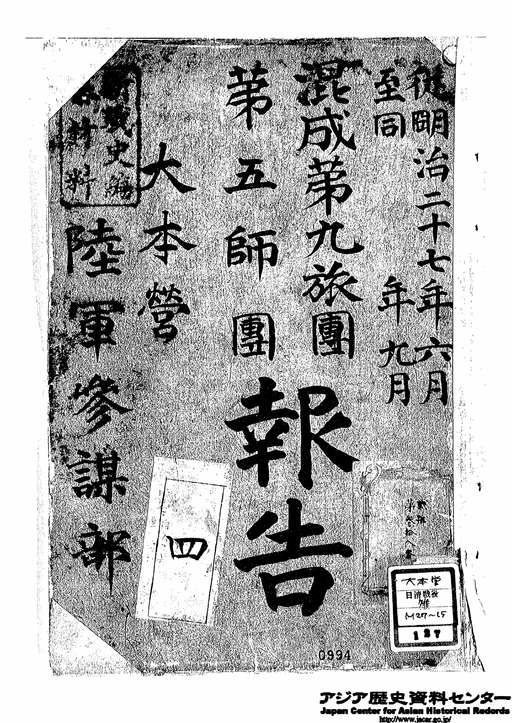 從明治二十七年六月
至同年九月
混成第九旅團
第五師團
報告
大本營
陸軍參謀部
四
大本営
日清戦役
雑
M27~15
127
0994
アジア歴史資料センター
Japan Center for Asian Historical Records
http://www.jacar.go.jp/